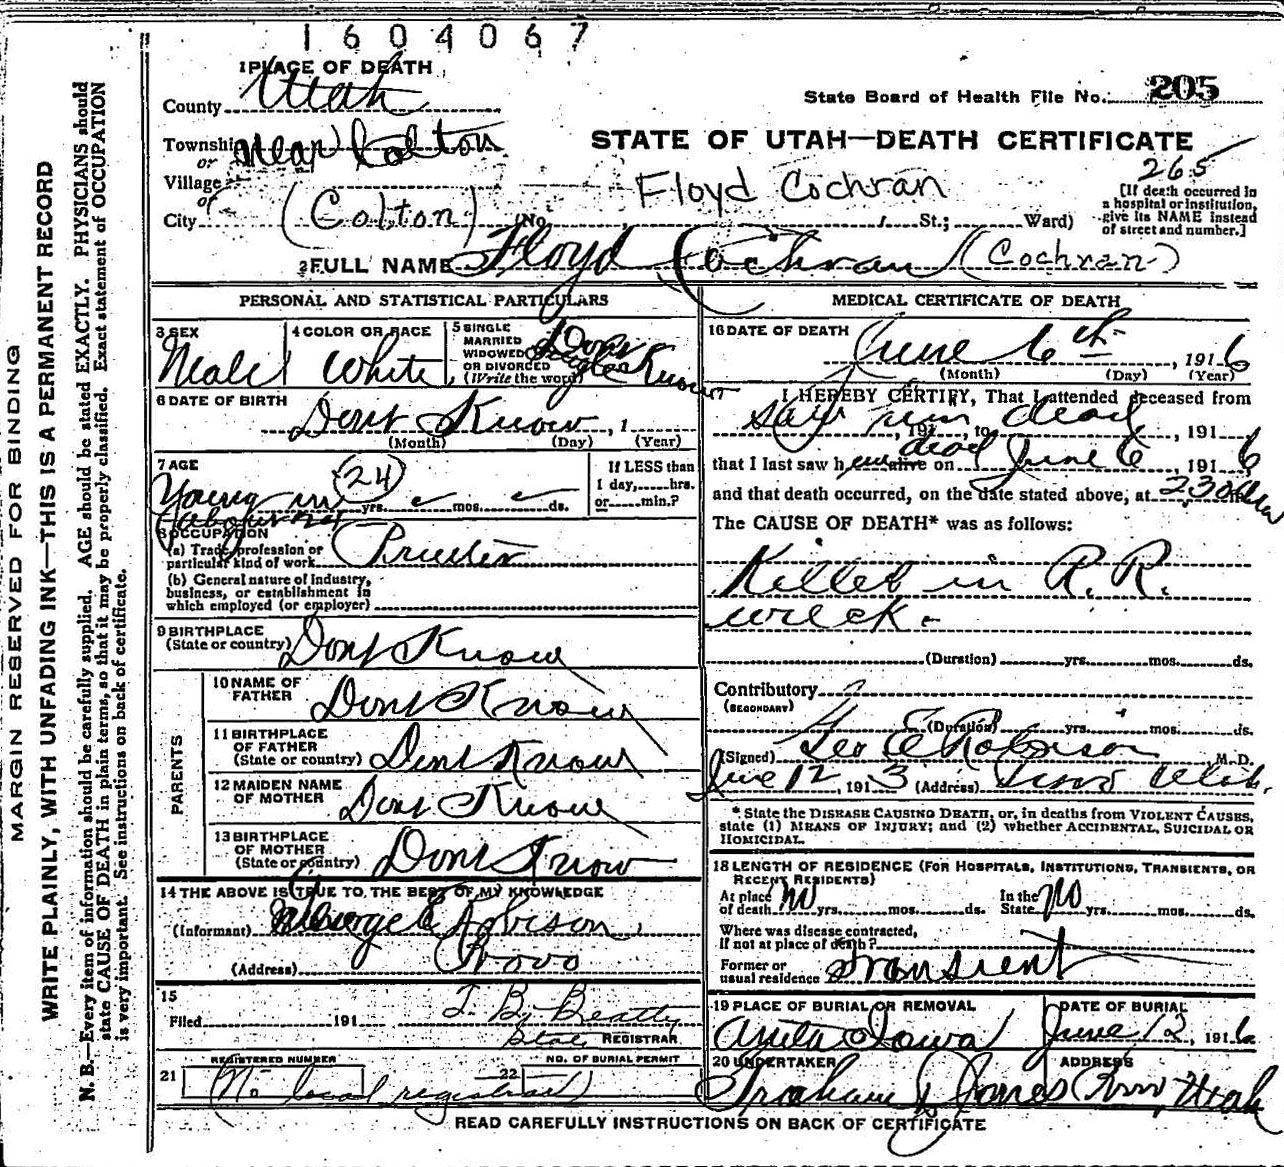 1604067
1 PLACE OF DEATH
County Utah
State Board of Health File No. 205
Township near Colton
or
Village
or
City (Colton) (No. St.; Ward)
STATE OF UTAH—DEATH CERTIFICATE
265
Floyd Cochran
[If death occurred in
a hospital or institution,
give its NAME instead
of street and number.]
2 FULL NAME Floyd Cochran (Cochran)
PERSONAL AND STATISTICAL PARTICULARS
3 SEX
Male
4 COLOR OR RACE
White
5 SINGLE
MARRIED
WIDOWED
OR DIVORCED
(Write the word)
Dont Know
6 DATE OF BIRTH
Dont Know, 1
(Month) (Day) (Year)
7 AGE
Young m (24) yrs. mos. ds.
If LESS than
1 day, hrs.
or min.?
8 OCCUPATION
(a) Trade, profession or
particular kind of work
(b) General nature of industry,
business, or establishment in
which employed (or employer)
9 BIRTHPLACE
(State or country) Dont Know
PARENTS
10 NAME OF
FATHER Dont Know
11 BIRTHPLACE
OF FATHER
(State or country) Dont Know
12 MAIDEN NAME
OF MOTHER Dont Know
13 BIRTHPLACE
OF MOTHER
(State or country) Dont Know
14 THE ABOVE IS TRUE TO THE BEST OF MY KNOWLEDGE
(Informant) George E Robison
(Address) Provo
15
Filed 191 T. B. Beatty
State REGISTRAR
REGISTERED NUMBER
NO. OF BURIAL PERMIT
21 22
No local registrar
MEDICAL CERTIFICATE OF DEATH
16 DATE OF DEATH
June 6th, 1916
(Month) (Day) (Year)
17 I HEREBY CERTIFY, That I attended deceased from
Saw him dead
, 191 , to , 191
that I last saw h im alive on dead June 6, 1916
and that death occurred, on the date stated above, at 230 AM
The CAUSE OF DEATH* was as follows:
Killed in R. R.
wreck.
(Duration) yrs. mos. ds.
Contributory
(SECONDARY)
(Duration) yrs. mos. ds.
(Signed) Geo E Robison M. D.
June 12, 1913 (Address) Provo Utah.
* State the DISEASE CAUSING DEATH, or, in deaths from VIOLENT CAUSES,
state (1) MEANS OF INJURY; and (2) whether ACCIDENTAL, SUICIDAL OR
HOMICIDAL.
18 LENGTH OF RESIDENCE (FOR HOSPITALS, INSTITUTIONS, TRANSIENTS, OR
RECENT RESIDENTS)
At place
of death no yrs. mos. ds. In the
State no yrs. mos. ds.
Where was disease contracted,
if not at place of death?
Former or
usual residence Transient
19 PLACE OF BURIAL OR REMOVAL
Anita Iowa
DATE OF BURIAL
June 12, 1916
20 UNDERTAKER
Graham & Jones
ADDRESS
Provo, Utah
READ CAREFULLY INSTRUCTIONS ON BACK OF CERTIFICATE
MARGIN RESERVED FOR BINDING
WRITE PLAINLY, WITH UNFADING INK—THIS IS A PERMANENT RECORD
N. B.—Every item of information should be carefully supplied. AGE should be stated EXACTLY. PHYSICIANS should
state CAUSE OF DEATH in plain terms, so that it may be properly classified. Exact statement of OCCUPATION
is very important. See instructions on back of certificate.